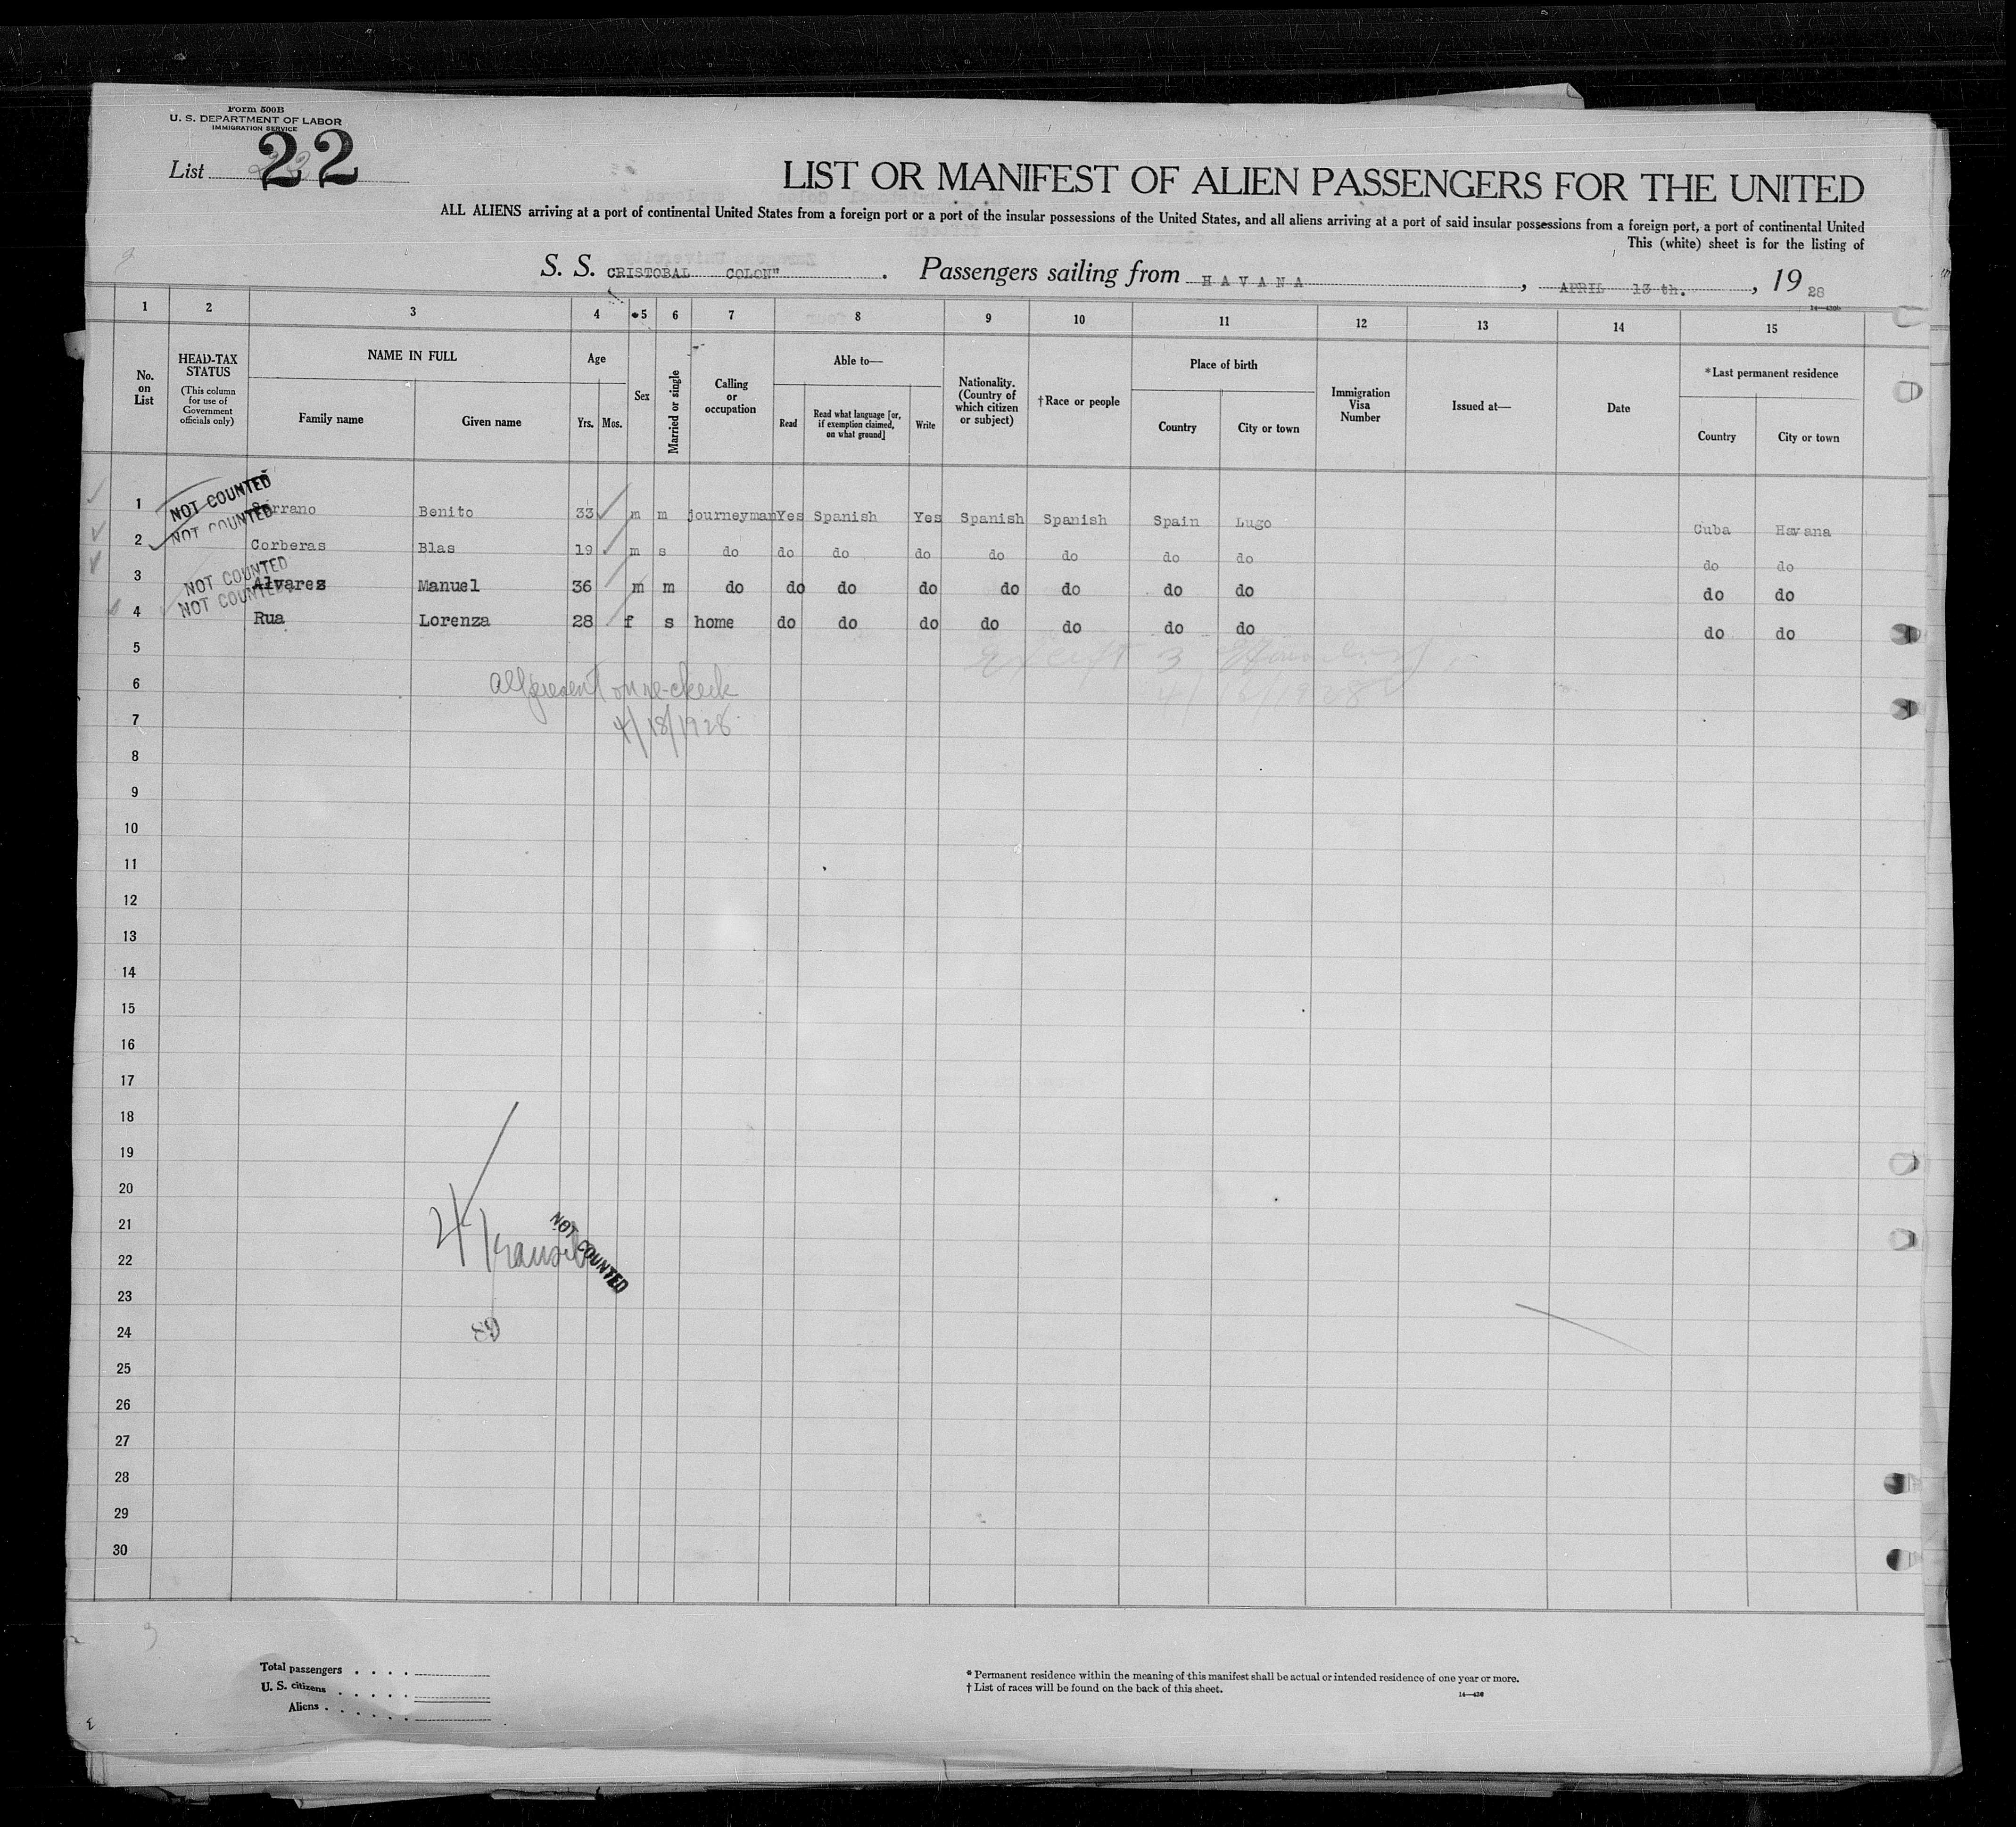 Form 500B
U. S. DEPARTMENT OF LABOR
IMMIGRATION SERVICE
List 22
LIST OR MANIFEST OF ALIEN PASSENGERS FOR THE UNITED
ALL ALIENS arriving at a port of continental United States from a foreign port or a port of the insular possessions of the United States, and all aliens arriving at a port of said insular possessions from a foreign port, a port of continental United
This (white) sheet is for the listing of
S. S. CRISTOBAL COLON" . Passengers sailing from HAVANA , APRIL 13 th. , 19 28
1 2 3 4 5 6 7 8 9 10 11 12 13 14 15
No. on List
HEAD-TAX STATUS
(This column for use of Government officials only)
NAME IN FULL
Family name Given name
Age
Yrs. Mos.
Sex
Married or single
Calling or occupation
Able to—
Read
Read what language [or, if exemption claimed, on what ground]
Write
Nationality. (Country of which citizen or subject)
†Race or people
Place of birth
Country City or town
Immigration Visa Number
Issued at—
Date
*Last permanent residence
Country City or town
NOT COUNTED
1 Serrano Benito 33 m m journeyman Yes Spanish Yes Spanish Spanish Spain Lugo Cuba Havana
NOT COUNTED
2 Corberas Blas 19 m s do do do do do do do do do do
NOT COUNTED
3 Alvarez Manuel 36 m m do do do do do do do do do do
NOT COUNTED
4 Rua Lorenza 28 f s home do do do do do do do do do
5
6 All present on re-check
7 4/18/1928
8
9
10
11
12
13
14
15
16
17
18
19
20
21
22
NOT COUNTED
23
24
25
26
27
28
29
30
Total passengers . . . .
U. S. citizens . . . . .
Aliens . . . . . .
* Permanent residence within the meaning of this manifest shall be actual or intended residence of one year or more.
† List of races will be found on the back of this sheet.
14—430